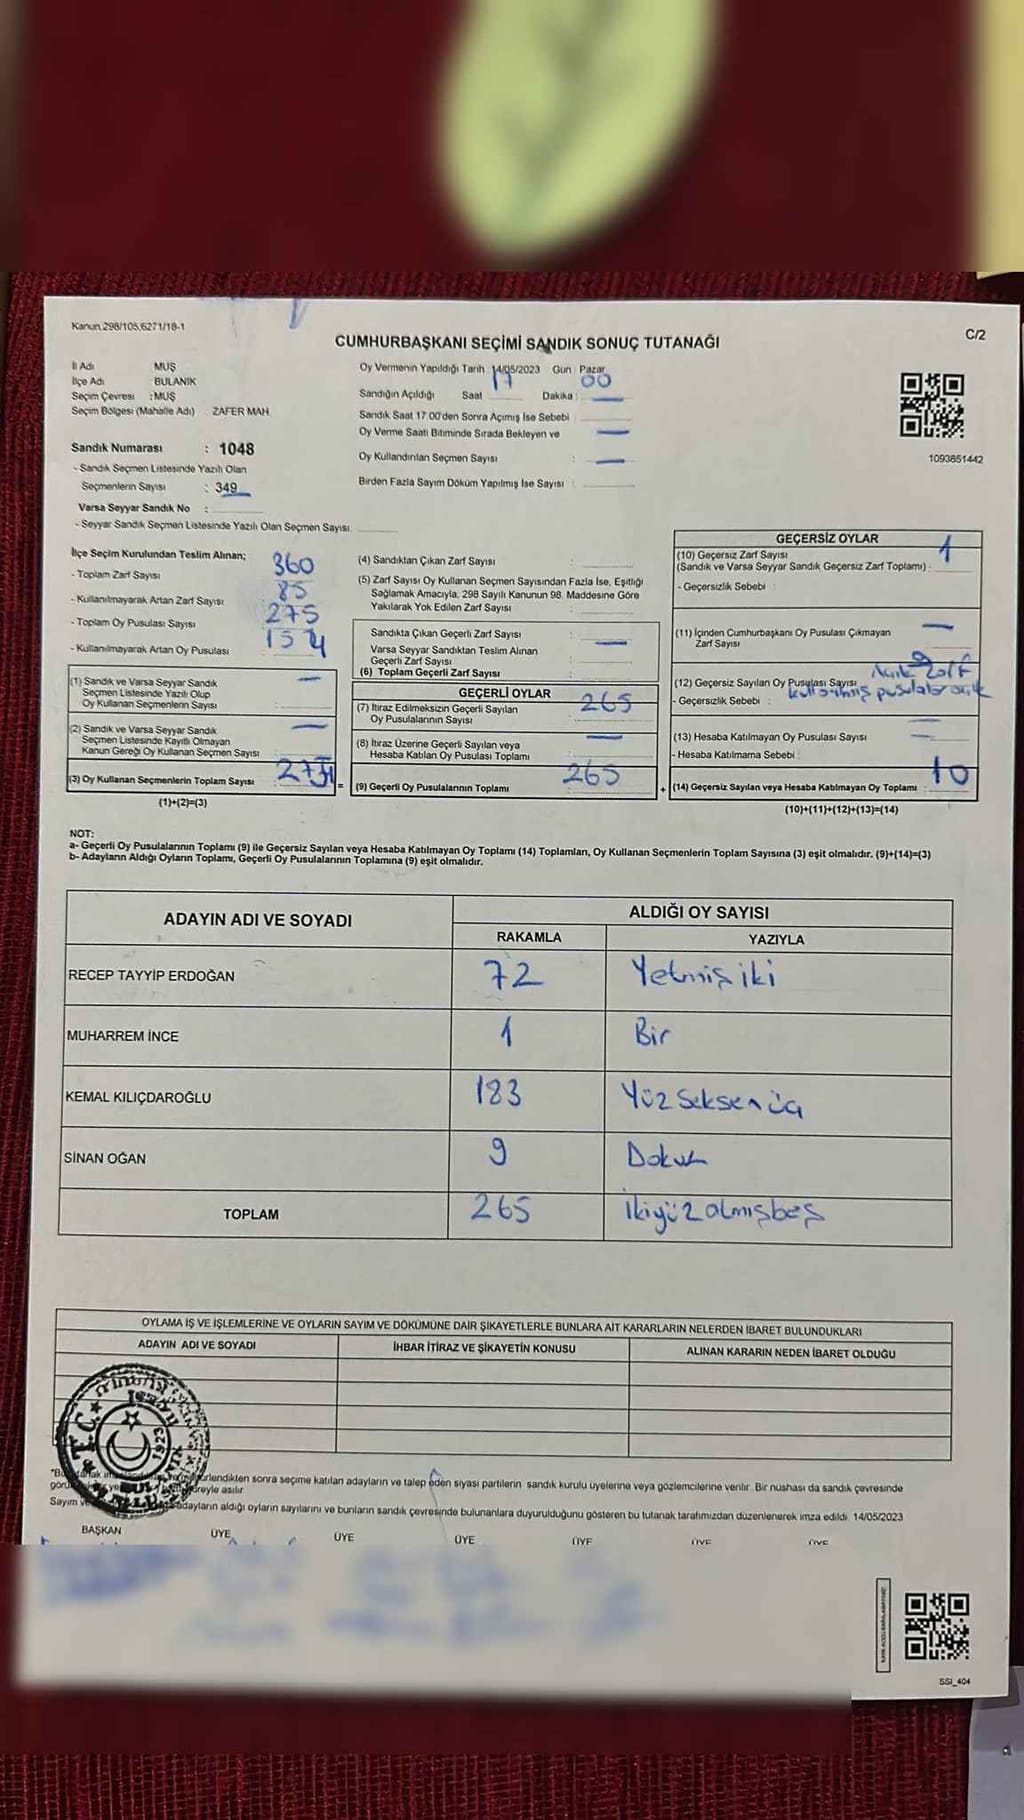 Kanun.298/105,6271/18-1
C/2
CUMHURBAŞKANI SEÇİMİ SANDIK SONUÇ TUTANAĞI
İl Adı MUŞ
İlçe Adı BULANIK
Seçim Çevresi : MUŞ
Seçim Bölgesi (Mahalle Adı) ZAFER MAH.
Sandık Numarası : 1048
- Sandık Seçmen Listesinde Yazılı Olan
Seçmenlerin Sayısı : 349
Varsa Seyyar Sandık No :
- Seyyar Sandık Seçmen Listesinde Yazılı Olan Seçmen Sayısı:
Oy Vermenin Yapıldığı Tarih 14/05/2023 Gün Pazar
Sandığın Açıldığı Saat 17 Dakika : 00
Sandık Saat 17:00'den Sonra Açımış İse Sebebi —
Oy Verme Saati Bitiminde Sırada Bekleyen ve —
Oy Kullandırılan Seçmen Sayısı : —
Birden Fazla Sayım Döküm Yapılmış İse Sayısı :
1093851442
İlçe Seçim Kurulundan Teslim Alınan;
- Toplam Zarf Sayısı 360
- Kullanılmayarak Artan Zarf Sayısı 85
- Toplam Oy Pusulası Sayısı 275
- Kullanılmayarak Artan Oy Pusulası
(1) Sandık ve Varsa Seyyar Sandık —
Seçmen Listesinde Yazılı Olup
Oy Kullanan Seçmenlerin Sayısı :
(2) Sandık ve Varsa Seyyar Sandık —
Seçmen Listesinde Kayıtlı Olmayan
Kanun Gereği Oy Kullanan Seçmen Sayısı :
(3) Oy Kullanan Seçmenlerin Toplam Sayısı
(1)+(2)=(3)
=
(4) Sandıktan Çıkan Zarf Sayısı :
(5) Zarf Sayısı Oy Kullanan Seçmen Sayısından Fazla İse, Eşitliği
Sağlamak Amacıyla, 298 Sayılı Kanunun 98. Maddesine Göre
Yakılarak Yok Edilen Zarf Sayısı :
Sandıkta Çıkan Geçerli Zarf Sayısı :
Varsa Seyyar Sandıktan Teslim Alınan —
Geçerli Zarf Sayısı :
(6) Toplam Geçerli Zarf Sayısı :
GEÇERLİ OYLAR
(7) İtiraz Edilmeksizin Geçerli Sayılan 265
Oy Pusulalarının Sayısı
(8) İtiraz Üzerine Geçerli Sayılan veya —
Hesaba Katılan Oy Pusulası Toplamı :
(9) Geçerli Oy Pusulalarının Toplamı 265
+
GEÇERSİZ OYLAR
(10) Geçersiz Zarf Sayısı 1
(Sandık ve Varsa Seyyar Sandık Geçersiz Zarf Toplamı) :
- Geçersizlik Sebebi :
(11) İçinden Cumhurbaşkanı Oy Pusulası Çıkmayan —
Zarf Sayısı :
(12) Geçersiz Sayılan Oy Pusulası Sayısı 9 Açık Zarf
- Geçersizlik Sebebi : kullanılmış pusulalar açık
(13) Hesaba Katılmayan Oy Pusulası Sayısı —
- Hesaba Katılmama Sebebi : —
(14) Geçersiz Sayılan veya Hesaba Katılmayan Oy Toplamı : 10
(10)+(11)+(12)+(13)=(14)
NOT:
a- Geçerli Oy Pusulalarının Toplamı (9) ile Geçersiz Sayılan veya Hesaba Katılmayan Oy Toplamı (14) Toplamları, Oy Kullanan Seçmenlerin Toplam Sayısına (3) eşit olmalıdır. (9)+(14)=(3)
b- Adayların Aldığı Oyların Toplamı, Geçerli Oy Pusulalarının Toplamına (9) eşit olmalıdır.
ADAYIN ADI VE SOYADI ALDIĞI OY SAYISI
RAKAMLA YAZIYLA
RECEP TAYYİP ERDOĞAN 72 Yetmiş iki
MUHARREM İNCE 1 Bir
KEMAL KILIÇDAROĞLU 183 Yüz seksen üç
SİNAN OĞAN 9 Dokuz
TOPLAM 265 İkiyüz altmışbeş
OYLAMA İŞ VE İŞLEMLERİNE VE OYLARIN SAYIM VE DÖKÜMÜNE DAİR ŞİKAYETLERLE BUNLARA AİT KARARLARIN NELERDEN İBARET BULUNDUKLARI
ADAYIN ADI VE SOYADI İHBAR İTİRAZ VE ŞİKAYETİN KONUSU ALINAN KARARIN NEDEN İBARET OLDUĞU
T.C. 1923
sonra seçime katılan adayların ve talep eden siyasi partilerin sandık kurulu üyelerine veya gözlemcilerine verilir. Bir nüshası da sandık çevresinde
asılır
Sayım ve adayların aldığı oyların sayılarını ve bunların sandık çevresinde bulunanlara duyurulduğunu gösteren bu tutanak tarafımızdan düzenlenerek imza edildi. 14/05/2023
BAŞKAN ÜYE ÜYE ÜYE ÜYE ÜYE ÜYE
SSİ_404